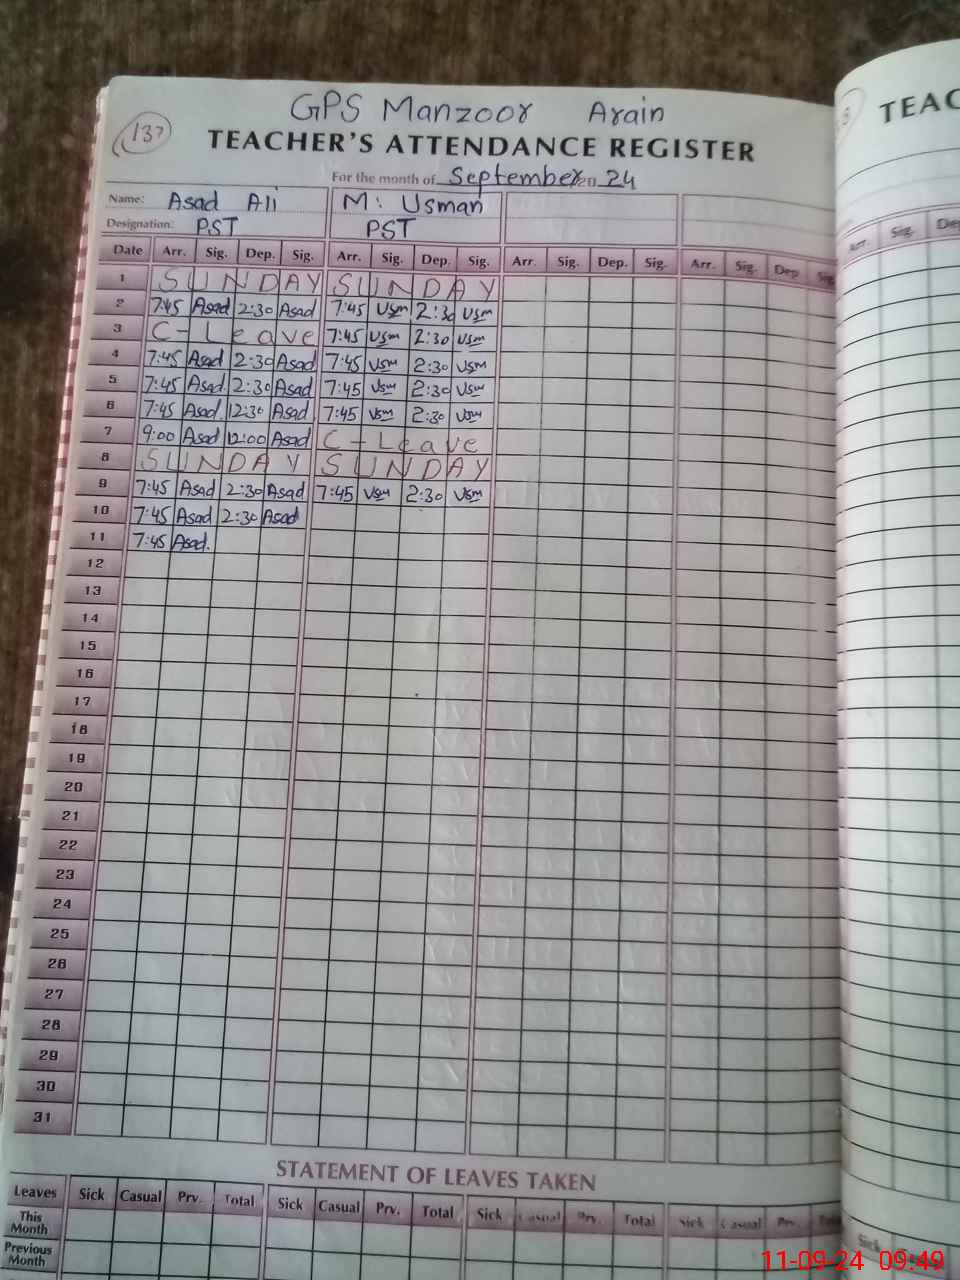 GPS Manzoor Arain
137
TEACHER'S ATTENDANCE REGISTER
For the month of September 20 24
Name: Asad Ali M. Usman
Designation: PST PST
Date Arr. Sig. Dep. Sig. Arr. Sig. Dep. Sig. Arr. Sig. Dep. Sig. Arr. Sig. Dep Sig.
1 SUNDAY SUNDAY
2 7:45 Asad 2:30 Asad 7:45 Usm 2:30 Usm
3 C-Leave 7:45 Usm 2:30 Usm
4 7:45 Asad 2:30 Asad 7:45 Usm 2:30 Usm
5 7:45 Asad 2:30 Asad 7:45 Usm 2:30 Usm
6 7:45 Asad. 12:30 Asad 7:45 Usm 2:30 Usm
7 9:00 Asad 12:00 Asad C-Leave
8 SUNDAY SUNDAY
9 7:45 Asad 2:30 Asad 7:45 Usm 2:30 Usm
10 7:45 Asad 2:30 Asad
11 7:45 Asad.
12
13
14
15
16
17
18
19
20
21
22
23
24
25
26
27
28
29
30
31
STATEMENT OF LEAVES TAKEN
Leaves Sick Casual Prv. Total Sick Casual Prv. Total Sick Casual Prv. Total Sick Casual Prv.
This Month
Previous Month
TEAC
Arr. Sig. De
Sick
11-09-24 09:49